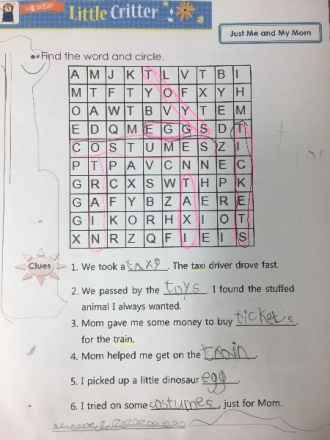 Little Critter
Just Me and My Mom
Find the word and circle.
A M J K T L V T B I
M T F T Y O F X Y H
O A W T B I Y T E M
E D Q M E G G S D T
C O S T U M E S Z I
P T I A V C N N E C
G R C X S W T H P K
G A F Y B Z A E R E
G I K O R H X I O T
X N R Z Q F I E I S
Clues
1. We took a taxi. The taxi driver drove fast.
2. We passed by the toys. I found the stuffed
animal I always wanted.
3. Mom gave me some money to buy tickets
for the train.
4. Mom helped me get on the train.
5. I picked up a little dinosaur egg.
6. I tried on some costumes, just for Mom.